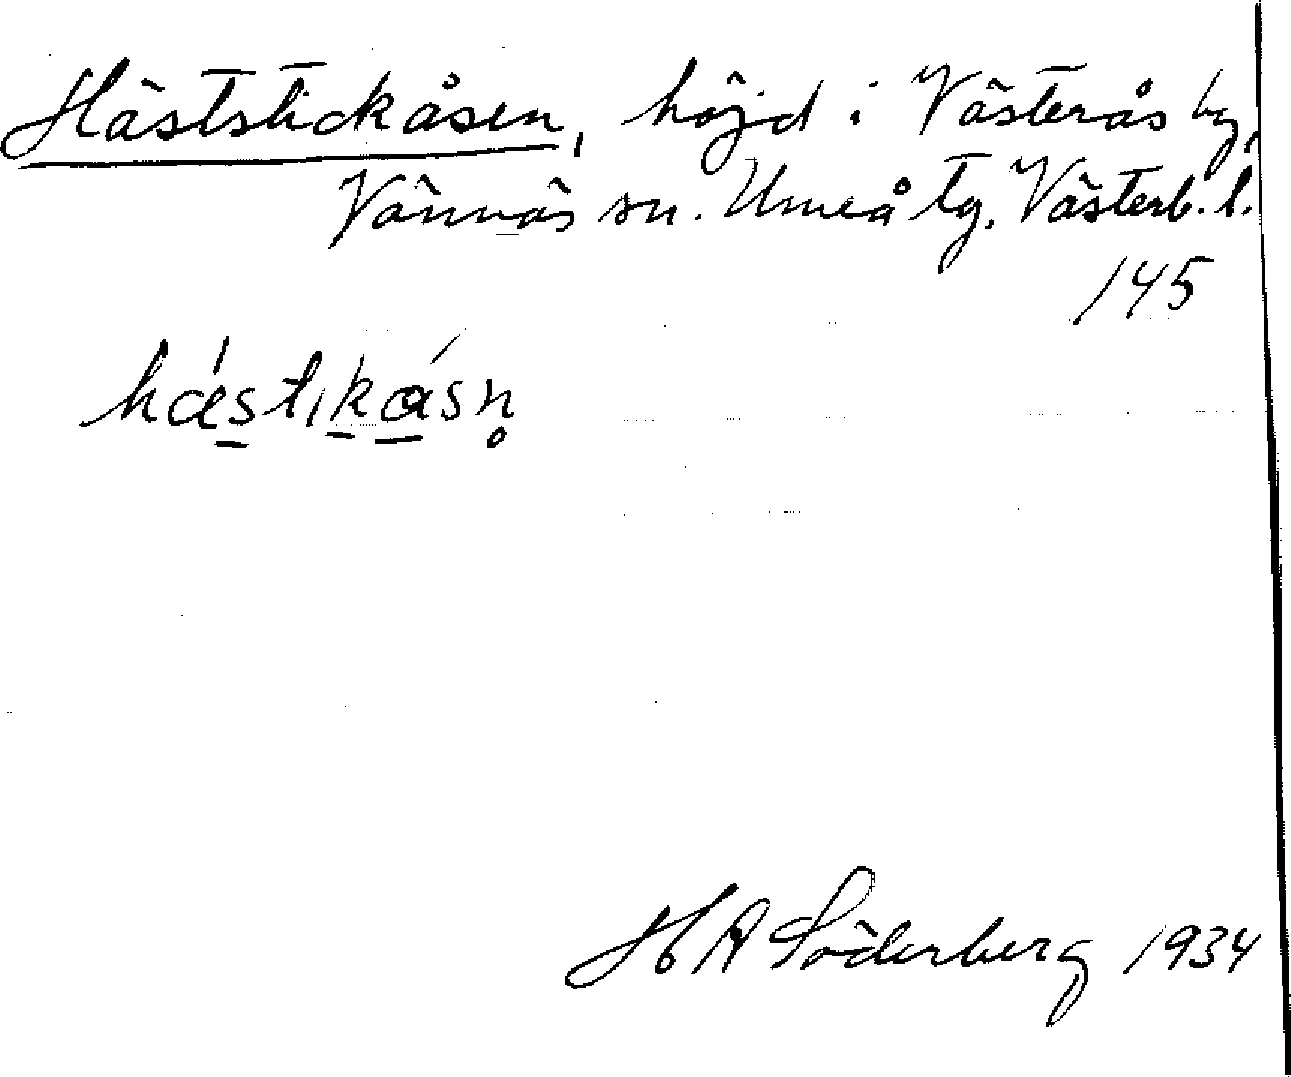 Häststickåsen, höjd i Västerås by,
Vännäs sn. Umeå tg. Västerb. l.
145
hästıkåsn̥
H A Söderberg 1934